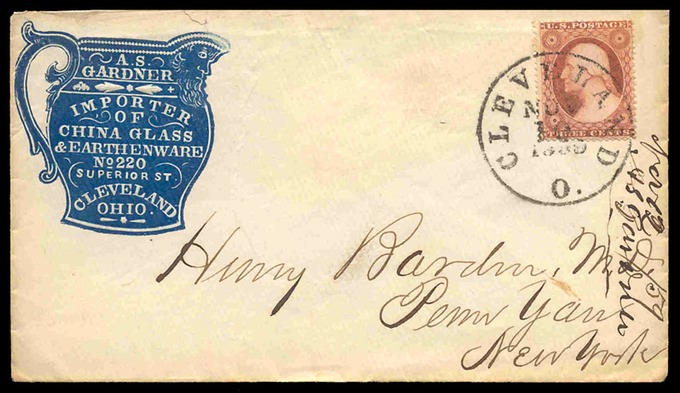 A.S.
GARDNER
IMPORTER
OF
CHINA GLASS
& EARTHENWARE
No 220
SUPERIOR ST.
CLEVELAND
OHIO.
U.S. POSTAGE
THREE CENTS
CLEVELAND
NOV
1859
O.
Henry Bardin, M
Penn Yan
New York